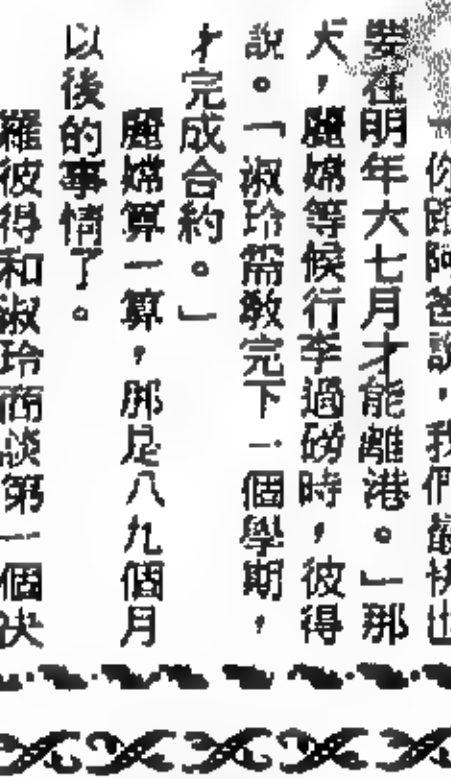 「你跟阿爸說，我們最快也
要在明年六七月才能離港。」那
天，麗嫦等候行李過磅時，彼得
說。「淑玲需教完下一個學期，
才完成合約。」
麗嫦算一算，那是八九個月
以後的事情了。
羅彼得和淑玲商談第一個決